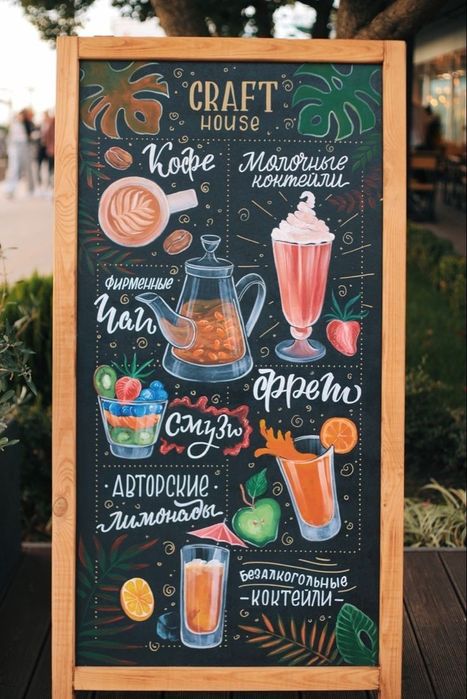 CRAFT
HOUSE
Кофе
Молочные
коктейли
ФИРМЕННЫЕ
Чаи
Фреш
Смузи
АВТОРСКИЕ
Лимонады
Безалкогольные
- КОКТЕЙЛИ -